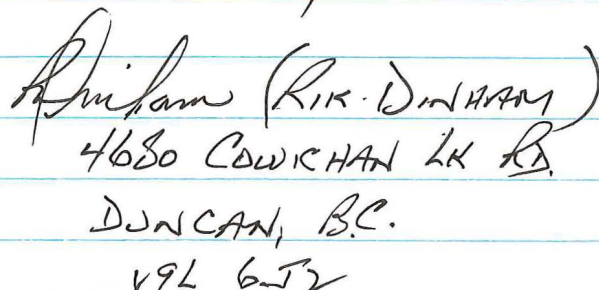 RDinham (RIK. DINHAM)
4680 COWICHAN LK RD.
DUNCAN, B.C.
V9L 6J2